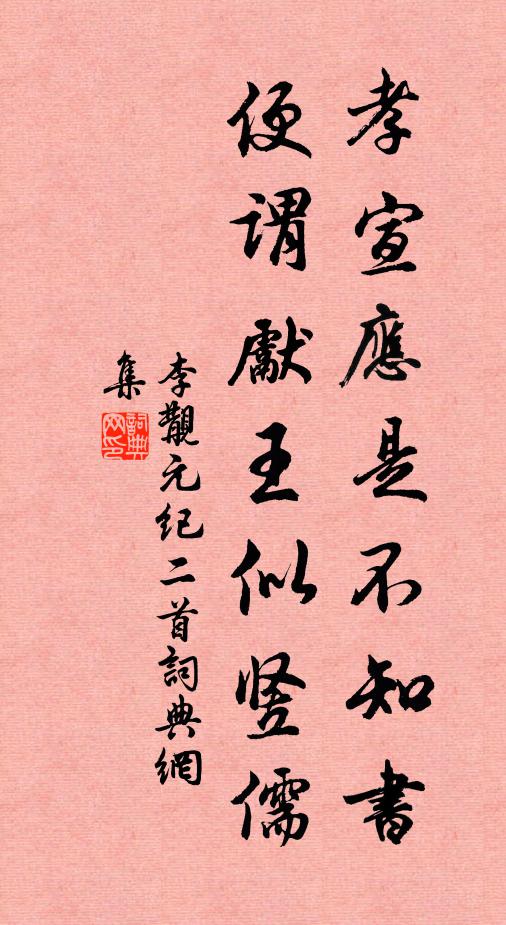 孝宣應是不知書
便謂獻王似竪儒
李觏元紀二首詞典網
集
詞典網印